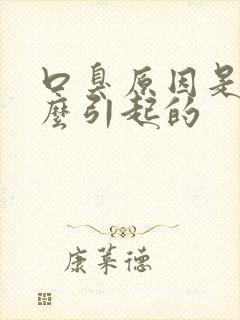 口臭原因是
麼引起的
康莱德